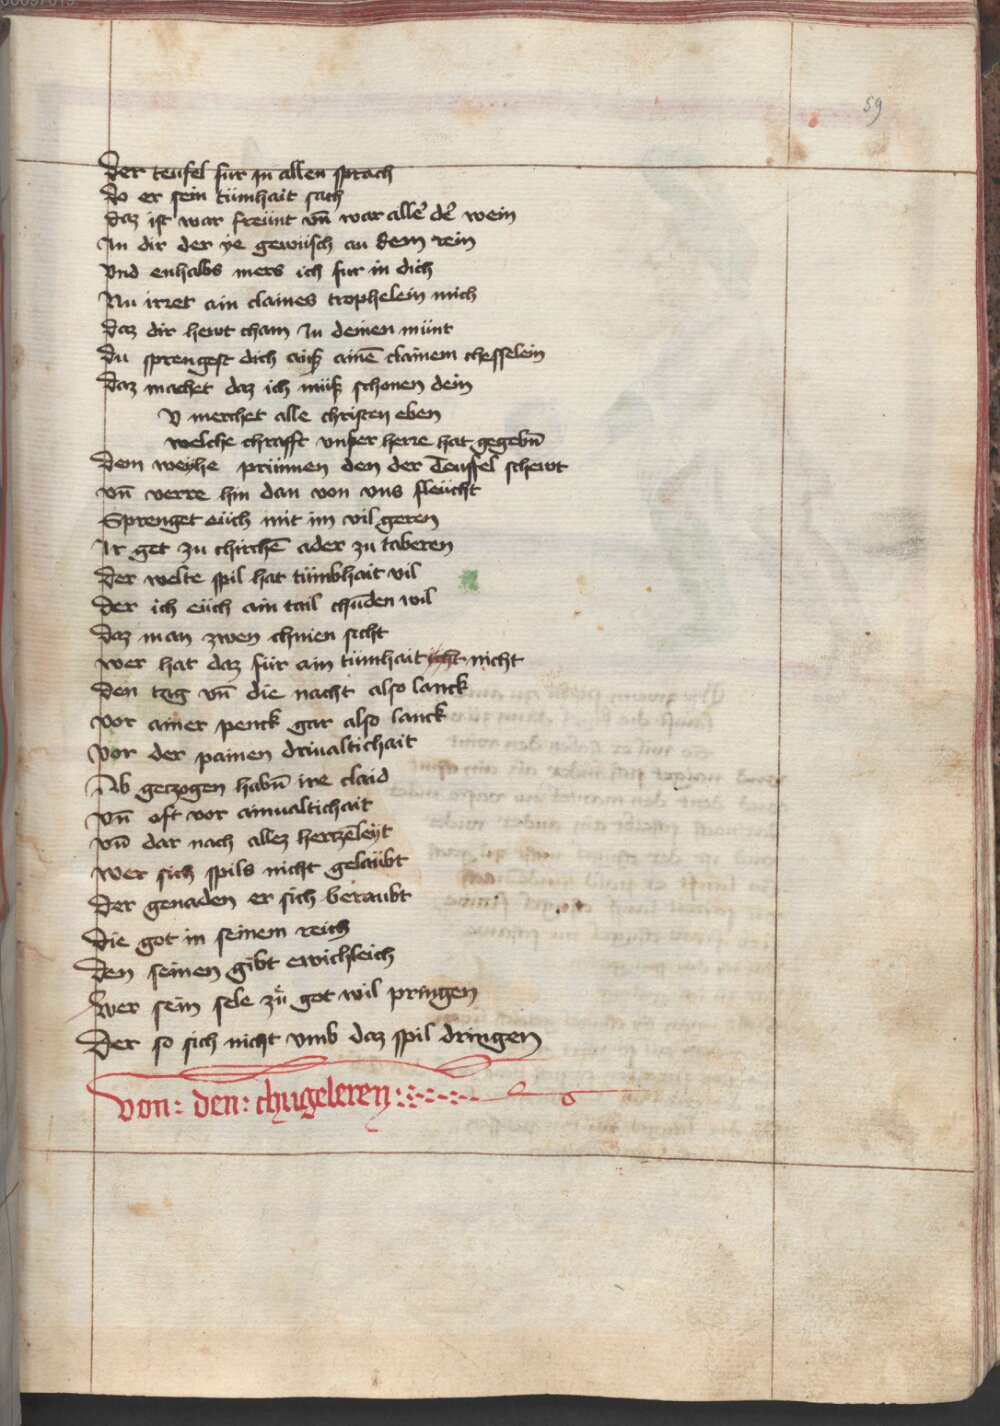 59
Der teufel fur in allen sprach
Do er sein tümhait sach
Daz ist war freünt vn̄ war alle͛ de͛ wein
In dir der ye gewüsch an dem rein
Vnd enhalbs mers ich fur in dich
Nu irret ain claines trophelein mich
Daz dir hewt cham In deinen münt
Du sprengest dich auß ainē clainem chesselein
Daz machet daz ich müß schonen dein
V merchet alle christen eben
welche chrafft vnser herre hat gegebn̄
Dem weyhe prünnen den der Teuffel schewt
vn̄ verre hin dan von vns fleücht
Sprenget eüch mit im vil geren
Ir get zu chirchē ader zu taberen
Der welte spil hat tümbhait vil
Der ich eüch ain tail chūden wil
Daz man zwen chnien sicht
wer hat daz für ain tümhait nicht
Den tag vn̄ die nacht also lanck
vor ainer penck gar also lanck
vor der painen driualtichait
Ab geczogen habn̄ ire claid
vn̄ oft vor ainualtichait
vn̄ dar nach allez hertzēleyt
wer sich spils nicht gelaübt
Der genaden er sich beraubt
Die got in seinem reich
Den seinen gibt ewichleich
Swer sein sele zů got wil pringen
Der so sich nicht vmb daz spil dringen
von: den: chugeleren